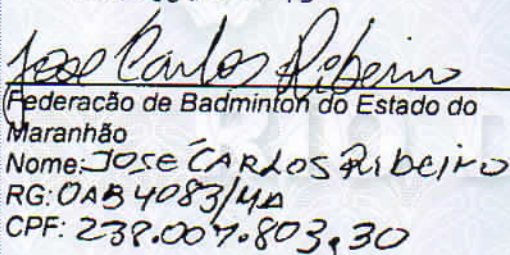 Jose Carlos Ribeiro
Federacão de Badminton do Estado do
Maranhão
Nome: JOSÉ CARLOS RibeiRO
RG: OAB 4083/MA
CPF: 238.007.803,30